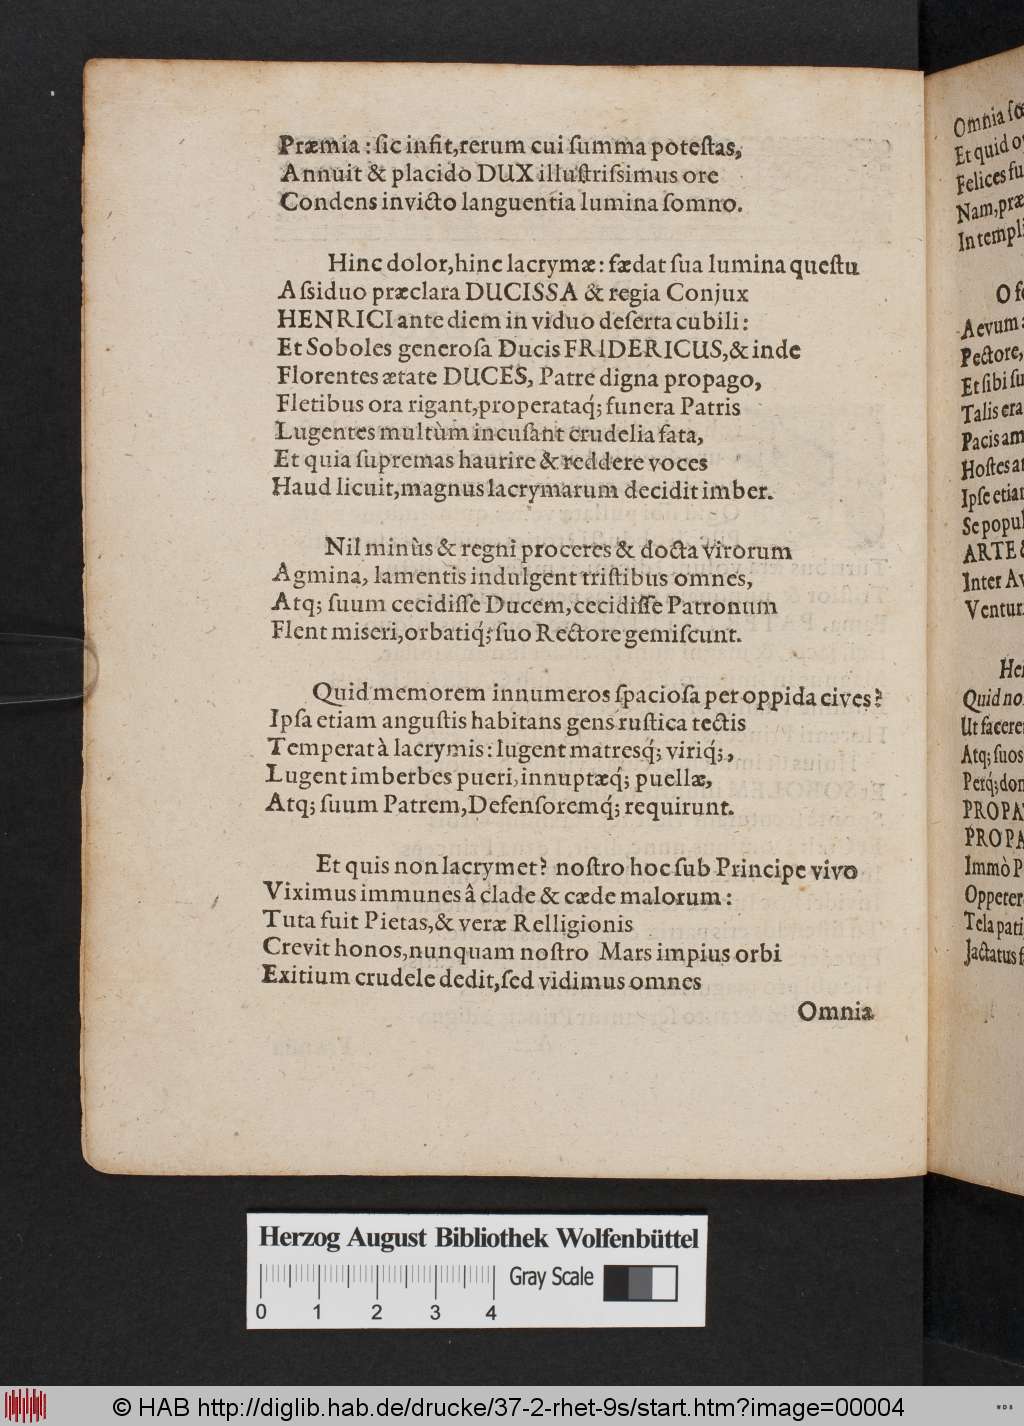 Præmia : ſic infit,rerum cui ſumma poteſtas,
Annuit & placido DUX illuſtriſsimus ore
Condens invicto languentia lumina ſomno.
Hinc dolor,hinc lacrymæ: fædat ſua lumina queſtu
Aſsiduo præclara DUCISSA & regia Conjux
HENRICI ante diem in viduo deſerta cubili:
Et Soboles generoſa Ducis FRIDERICUS,& inde
Florentes ætate DUCES, Patre digna propago,
Fletibus ora rigant,properataq́; funera Patris
Lugentes multùm incuſant crudelia fata,
Et quia ſupremas haurire & reddere voces
Haud licuit,magnus lacrymarum decidit imber.
Nil minùs & regni proceres & docta virorum
Agmina, lamentis indulgent triſtibus omnes,
Atq; ſuum cecidiſſe Ducem,cecidiſſe Patronum
Flent miſeri,orbatiq́; ſuo Rectore gemiſcunt.
Quid memorem innumeros ſpacioſa per oppida cives?
Ipſa etiam anguſtis habitans gens ruſtica tectis
Temperat à lacrymis: lugent matresq́; viriq́;,
Lugent imberbes pueri,innuptæq́; puellæ,
Atq; ſuum Patrem,Defenſoremq́; requirunt.
Et quis non lacrymet? noſtro hoc ſub Principe vivo
Viximus immunes â clade & cæde malorum:
Tuta fuit Pietas,& veræ Relligionis
Crevit honos,nunquam noſtro Mars impius orbi
Exitium crudele dedit,ſed vidimus omnes
Omnia
Omnia
Et quid
Felices
Nam,
In
O
Aevum
Pectore,
Et ſibi
Talis
Pacis
Hoſtes
Ipſe
Se
ARTE
Inter
Quid
Ut
Atq; ſuos
Immò
Jactatus
Herzog August Bibliothek Wolfenbüttel
Gray Scale
0 1 2 3 4
© HAB http://diglib.hab.de/drucke/37-2-rhet-9s/start.htm?image=00004